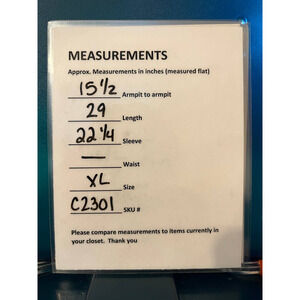 MEASUREMENTS
Approx. Measurements in inches (measured flat)
15 1/2 Armpit to armpit
29 Length
22 1/4 Sleeve
— Waist
XL Size
C2301 SKU #
Please compare measurements to items currently in
your closet. Thank you